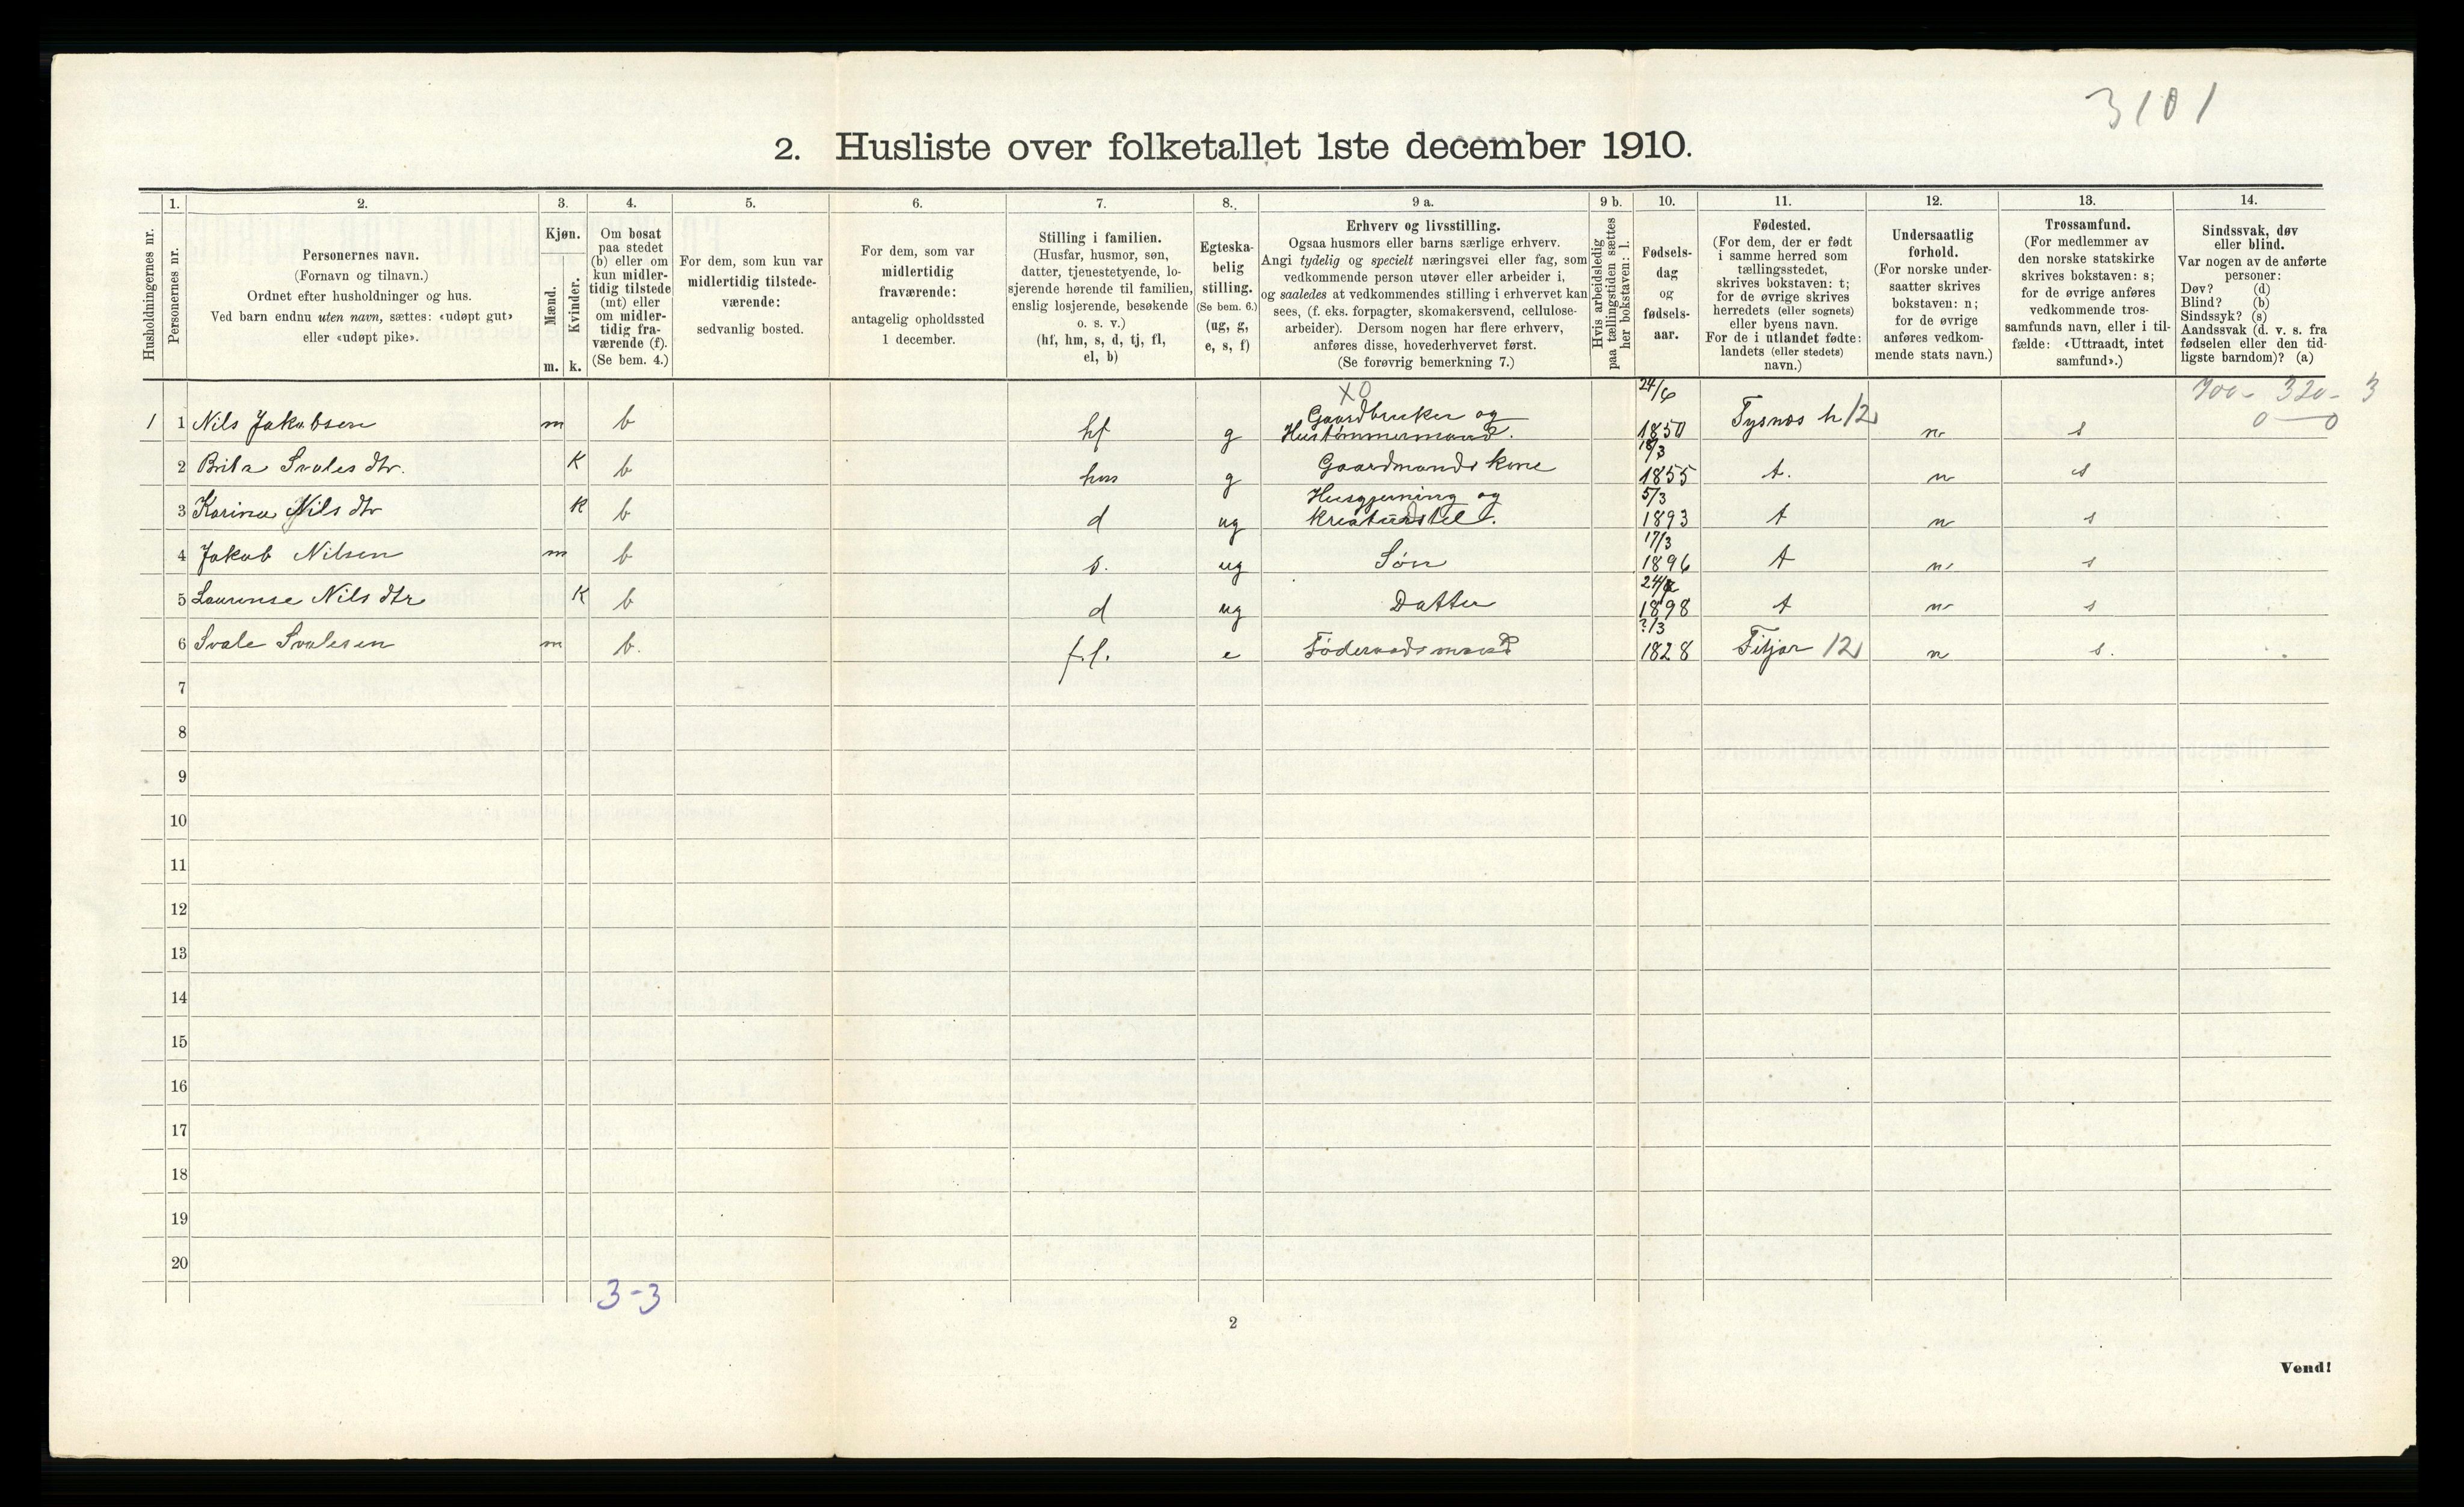 3101
2. Husliste over folketallet 1ste december 1910.
Husholdningernes nr.
1.
Personernes nr.
2.
Personernes navn.
(Fornavn og tilnavn.)
Ordnet efter husholdninger og hus.
Ved barn endnu uten navn, sættes: «udøpt gut»
eller «udøpt pike».
3.
Kjøn.
Mænd.
Kvinder.
m. k.
4.
Om bosat
paa stedet
(b) eller om
kun midler-
tidig tilstede
(mt) eller
om midler-
tidig fra-
værende (f).
(Se bem. 4.)
5.
For dem, som kun var
midlertidig tilstede-
værende:
sedvanlig bosted.
6.
For dem, som var
midlertidig
fraværende:
antagelig opholdssted
1 december.
7.
Stilling i familien.
(Husfar, husmor, søn,
datter, tjenestetyende, lo-
sjerende hørende til familien,
enslig losjerende, besøkende
o. s. v.)
(hf, hm, s, d, tj, fl,
el, b)
8.
Egteska-
belig
stilling.
(Se bem. 6.)
(ug, g,
e, s, f)
9 a.
Erhverv og livsstilling.
Ogsaa husmors eller barns særlige erhverv.
Angi tydelig og specielt næringsvei eller fag, som
vedkommende person utøver eller arbeider i,
og saaledes at vedkommendes stilling i erhvervet kan
sees, (f. eks. forpagter, skomakersvend, cellulose-
arbeider). Dersom nogen har flere erhverv,
anføres disse, hovederhvervet først.
(Se forøvrig bemerkning 7.)
9 b.
Hvis arbeidsledig
paa tællingstiden sættes
her bokstaven: l.
10.
Fødsels-
dag
og
fødsels-
aar.
11.
Fødested.
(For dem, der er født
i samme herred som
tællingsstedet,
skrives bokstaven: t;
for de øvrige skrives
herredets (eller sognets)
eller byens navn.
For de i utlandet fødte:
landets (eller stedets)
navn.)
12.
Undersaatlig
forhold.
(For norske under-
saatter skrives
bokstaven: n;
for de øvrige
anføres vedkom-
mende stats navn.)
13.
Trossamfund.
(For medlemmer av
den norske statskirke
skrives bokstaven: s;
for de øvrige anføres
vedkommende tros-
samfunds navn, eller i til-
fælde: «Uttraadt, intet
samfund».)
14.
Sindssvak, døv
eller blind.
Var nogen av de anførte
personer:
Døv? (d)
Blind? (b)
Sindssyk? (s)
Aandssvak (d. v. s. fra
fødselen eller den tid-
ligste barndom)? (a)
X0 24/6 700- 320- 3
0 — 0
1 1 Nils Jakobsen m b hf g Gaardbruker og Hustømmermand. 1850 Tysnes h 12 n s
2 Brita Svales dtr. K b hm g Gaardmands kone 18/3 1855 t. n s
3 Karina Nils dtr K b d ug Husgjerning og kreaturstel. 5/3 1893 t n s
4 Jakob Nilsen m b s. ug Søn 17/3 1896 t n s
5 Laurense Nils dtr K b d ug Datter 1898 t n s
6 Svale Svalesen m b. f.l. e Føderaadsmand ?/3 1828 Fitjar 12 n s.
7
8
9
10
11
12
13
14
15
16
17
18
19
20
3-3
2
Vend!